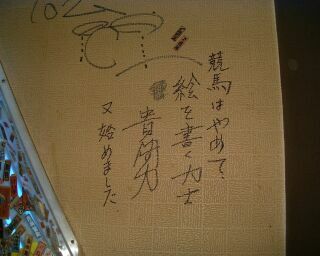 競馬はやめて、
絵を書く力士
貴闘力
又始めました